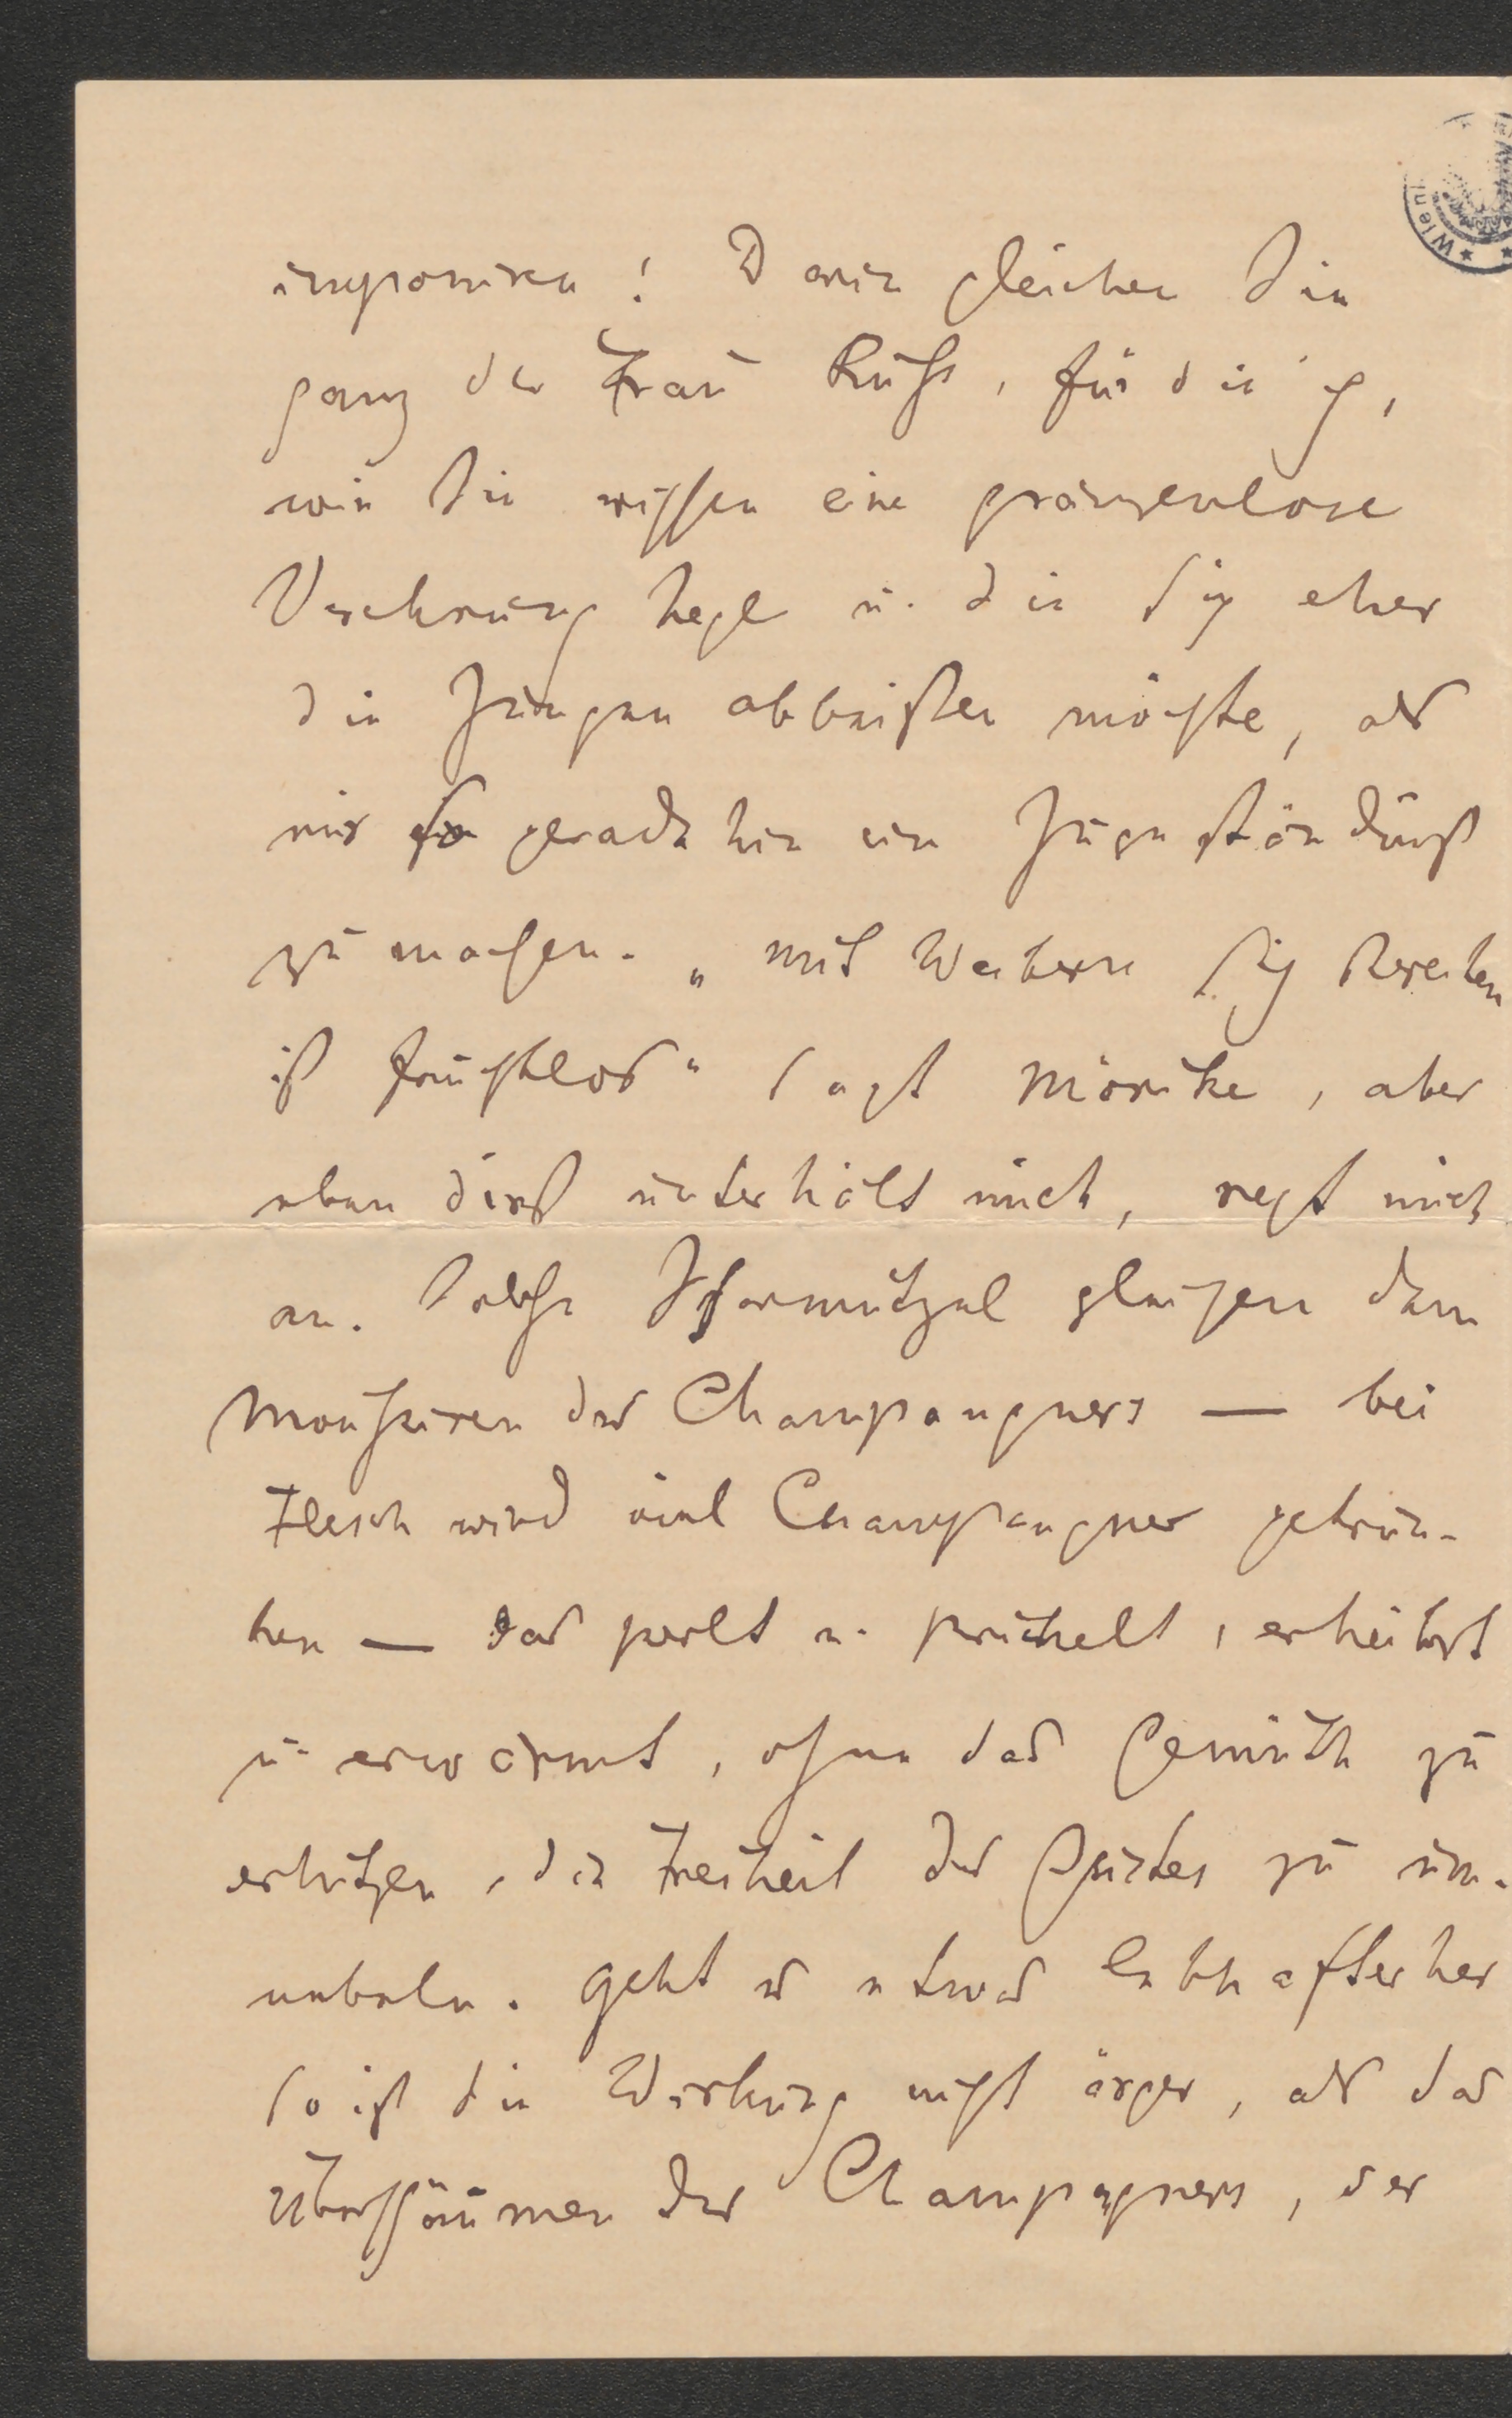 imponiren! Darin gleichen Sie
ganz der Frau Ruhs, für die ich,
wie Sie wissen eine gränzenlose
Verehrung hege u. die sich eher
die Zungen abbeißen möchte, als
mir geradehin ein Zugeständniß
zu machen. „Mit Weibern sich streiten
ist fruchtlos“ sagt Mörike, aber
eben dieß unterhält mich, regt mich
an. Solche Scharmützel gleichen dem
Moussiren des Champangners — bei
Flesch wird viel Champangner getrun-
ken — das perlt u. prickelt, erheitert
u. erwärmt, ohne das Gemüth zu
erhitzen, die Freiheit des Geistes zu um-
nebeln. Geht es etwas lebhafter her
so ist die Wirkung nicht ärger, als das
Überschäumen des Champagners, der
Wien